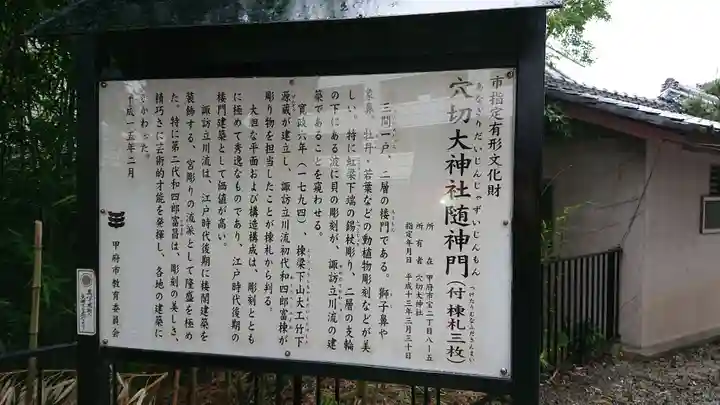 市指定有形文化財
あなぎりだいじんじゃずいじんもん
穴切大神社随神門(付棟札三枚)
つけたりむなふださんまい
所在 甲府市宝二丁目八ー五
所有者 穴切大神社
指定年月日 平成十三年三月三十日
三間一戸、二層の楼門である。獅子鼻や
象鼻、牡丹・若葉などの動植物彫刻などが美
しい。特に虹梁下端の錫杖彫り、二層の支輪
の下にある波に貝の彫刻が、諏訪立川流の建
築であることを窺わせる。
寛政六年(一七九四)、棟梁下山大工竹下
源蔵が建立し、諏訪立川流初代和四郎富棟が
彫り物を担当したことが棟札から判る。
大胆な平面および構造構成は、彫刻ととも
に極めて秀逸なものであり、江戸時代後期の
楼門建築として価値が高い。
諏訪立川流は、江戸時代後期に楼閣建築を
装飾する、宮彫りの流派として隆盛を極め
た。特に第二代和四郎富昌は、彫刻の美しさ、
精巧さに芸術的才能を発揮し、各地の建築に
たずさわった。
平成一五年二月
甲府市教育委員会